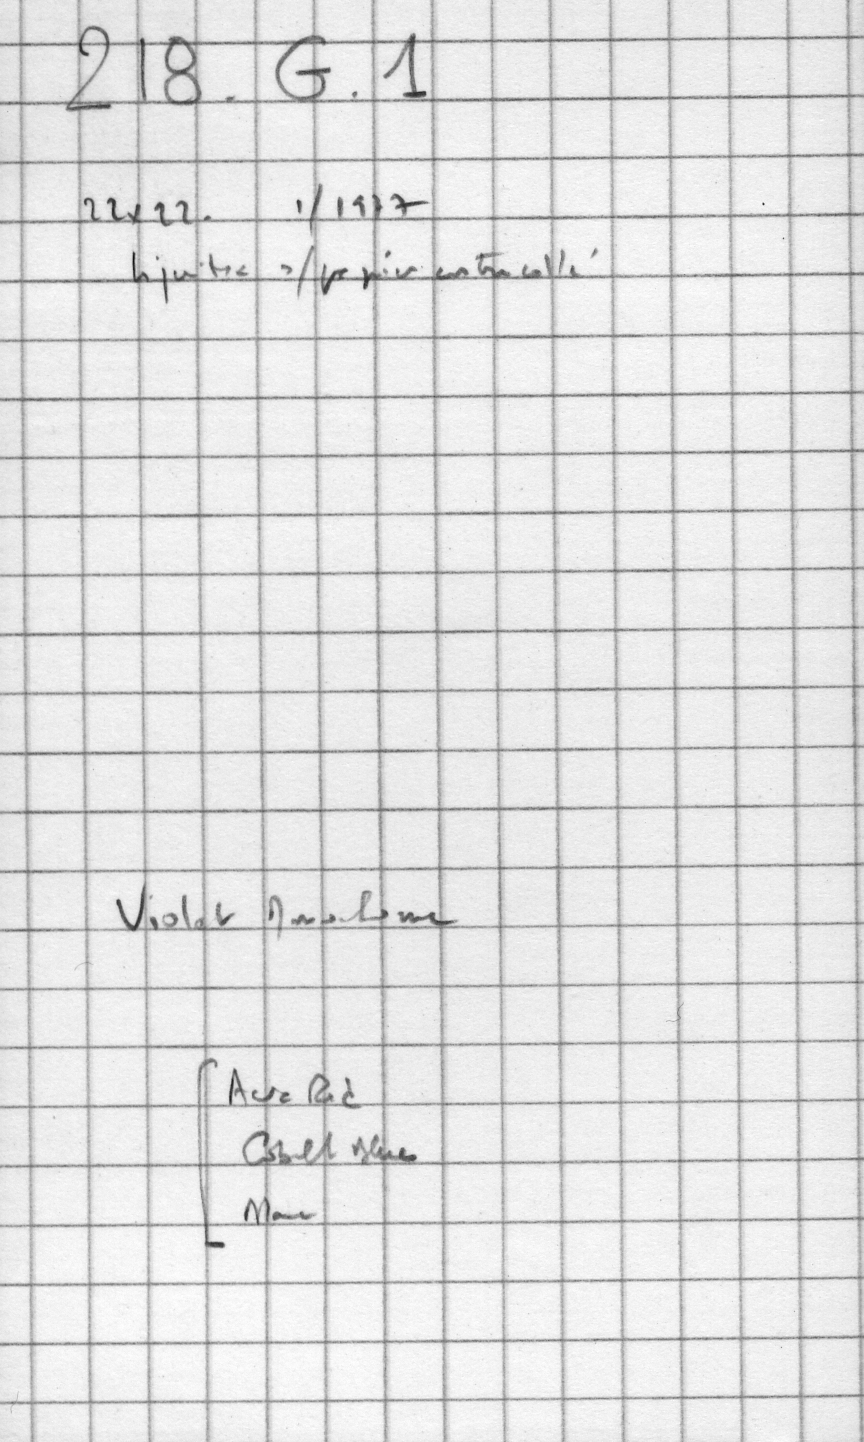 218. G. 1
22x22. 1/1977
liquitex s/papier contrecollé
Violet Monochrome
Acra Red
Cobalt Blue